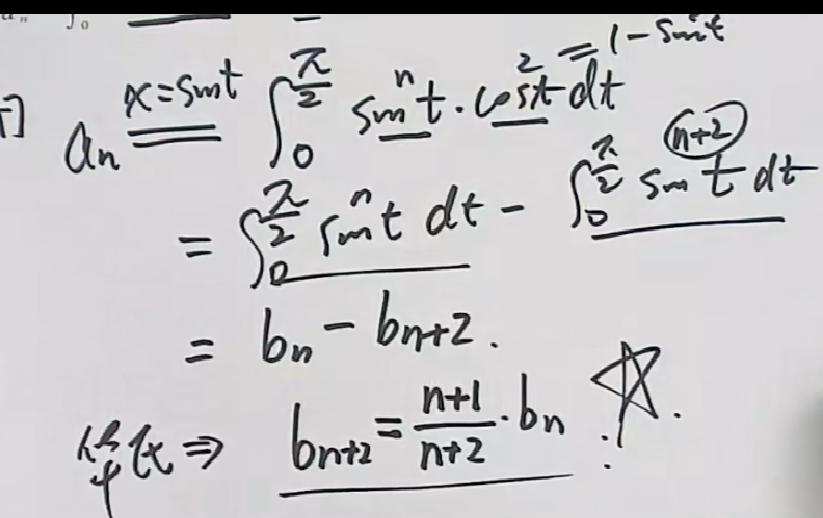 aₙ ∫₀
aₙ \overset{x=sint}{=} ∫₀^{π/2} sinⁿt·cos²t dt = 1-sin²t
= ∫₀^{π/2} sinⁿt dt - ∫₀^{π/2} sin^{n+2}t dt
= bₙ - bₙ₊₂.
⇒ bₙ₊₂ = \frac{n+1}{n+2}·bₙ ☆.